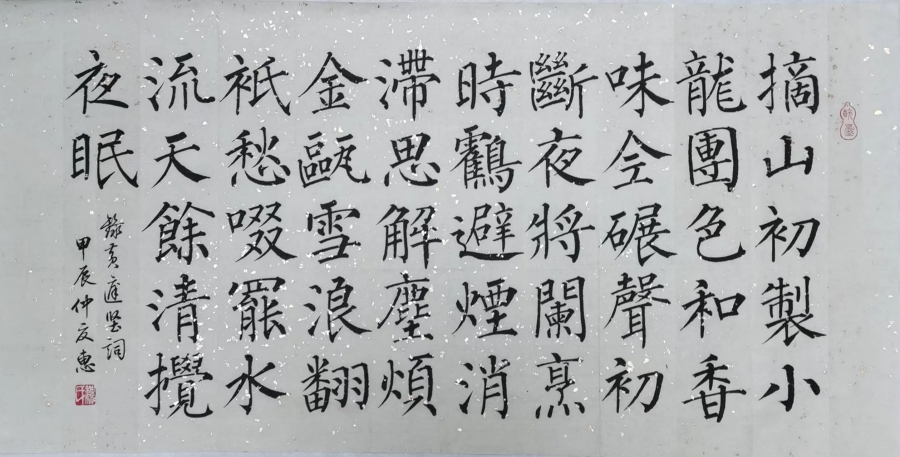 摘山初製小
龍團色和香
味全碾聲初
斷夜將闌烹
時鸖避煙消
滯思解塵煩
金甌雪浪翻
祇愁啜罷水
流天餘清攪
夜眠
錄黃庭坚詞
甲辰仲夏惠